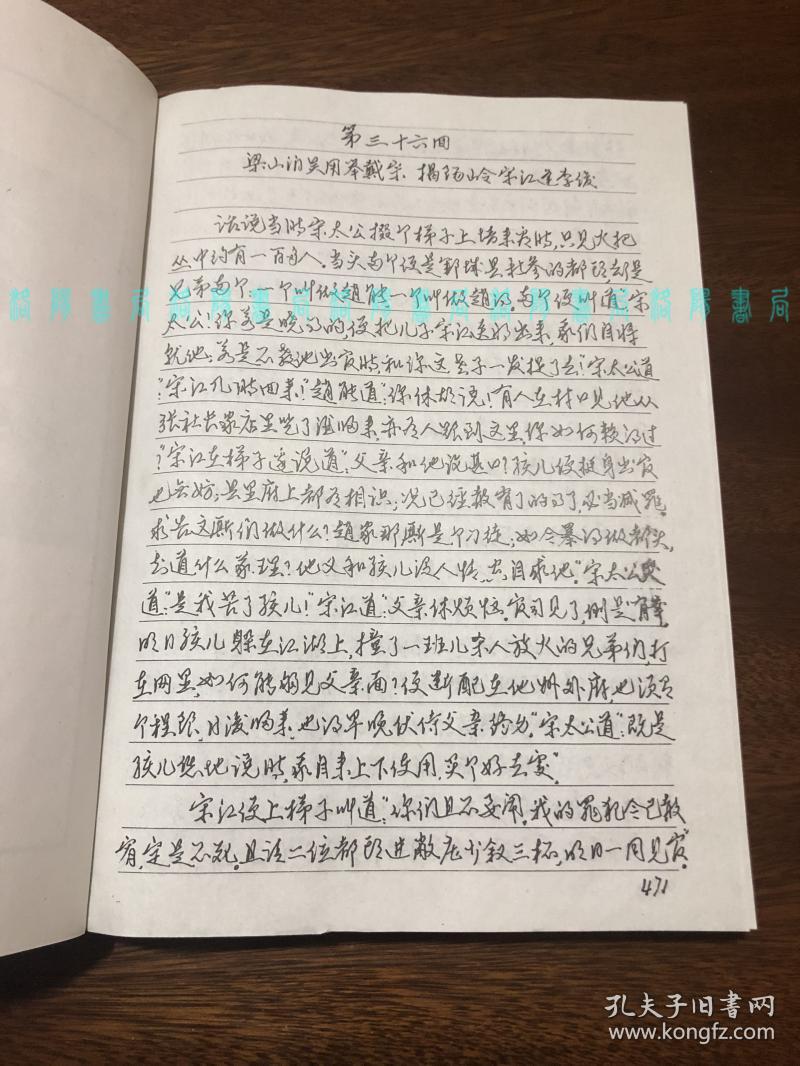 第三十六回
梁山泊吴用举戴宗 揭阳岭宋江逢李俊
话说当时宋太公掇个梯子上墙来看时,只见火把
丛中约有一百余人。当头两个便是郓城县新参的都头却是
兄弟两个:一个叫做赵能一个叫做赵得。两个便叫道:"宋
太公!你若是晓得的,便把儿子宋江送将出来,我们自将
就他;若是不教他出官时,和你这老子一发捉了去!"宋太公道
"宋江几时回来!"赵能道:"你休胡说!有人在村口见他从
张社长家店里吃了酒归来,亦有人跟到这里,你如何赖得过
?"宋江在梯子边说道:"父亲和他论甚口?孩儿便挺身出官
也无妨;县里府上都有相识;况已经赦宥了的事了,必当减罪。
求告这厮们做什么?赵家那厮是个刁徒;如今暴得做都头,
知道什么义理?他又和孩儿没人情,空自求他。"宋太公哭
道:"是我苦了孩儿!"宋江道:"父亲休烦恼。官司见了,倒是有幸。
明日孩儿躲在江湖上,撞了一班儿杀人放火的兄弟们,打
在网里,如何能够见父亲面?便断配在他州外府,也须有
个程限,日后归来,也得早晚伏侍父亲终身。"宋太公道:"既是
孩儿恁地说时,我自来上下使用,买个好去处。"
宋江便上梯子叫道:"你们且不要闹。我的罪犯今已赦
宥,定是不死。且请二位都头进敝庄少叙三杯,明日一同见官。"
471
洛阳书局
洛阳书局
洛阳书局
孔夫子旧书网
www.kongfz.com